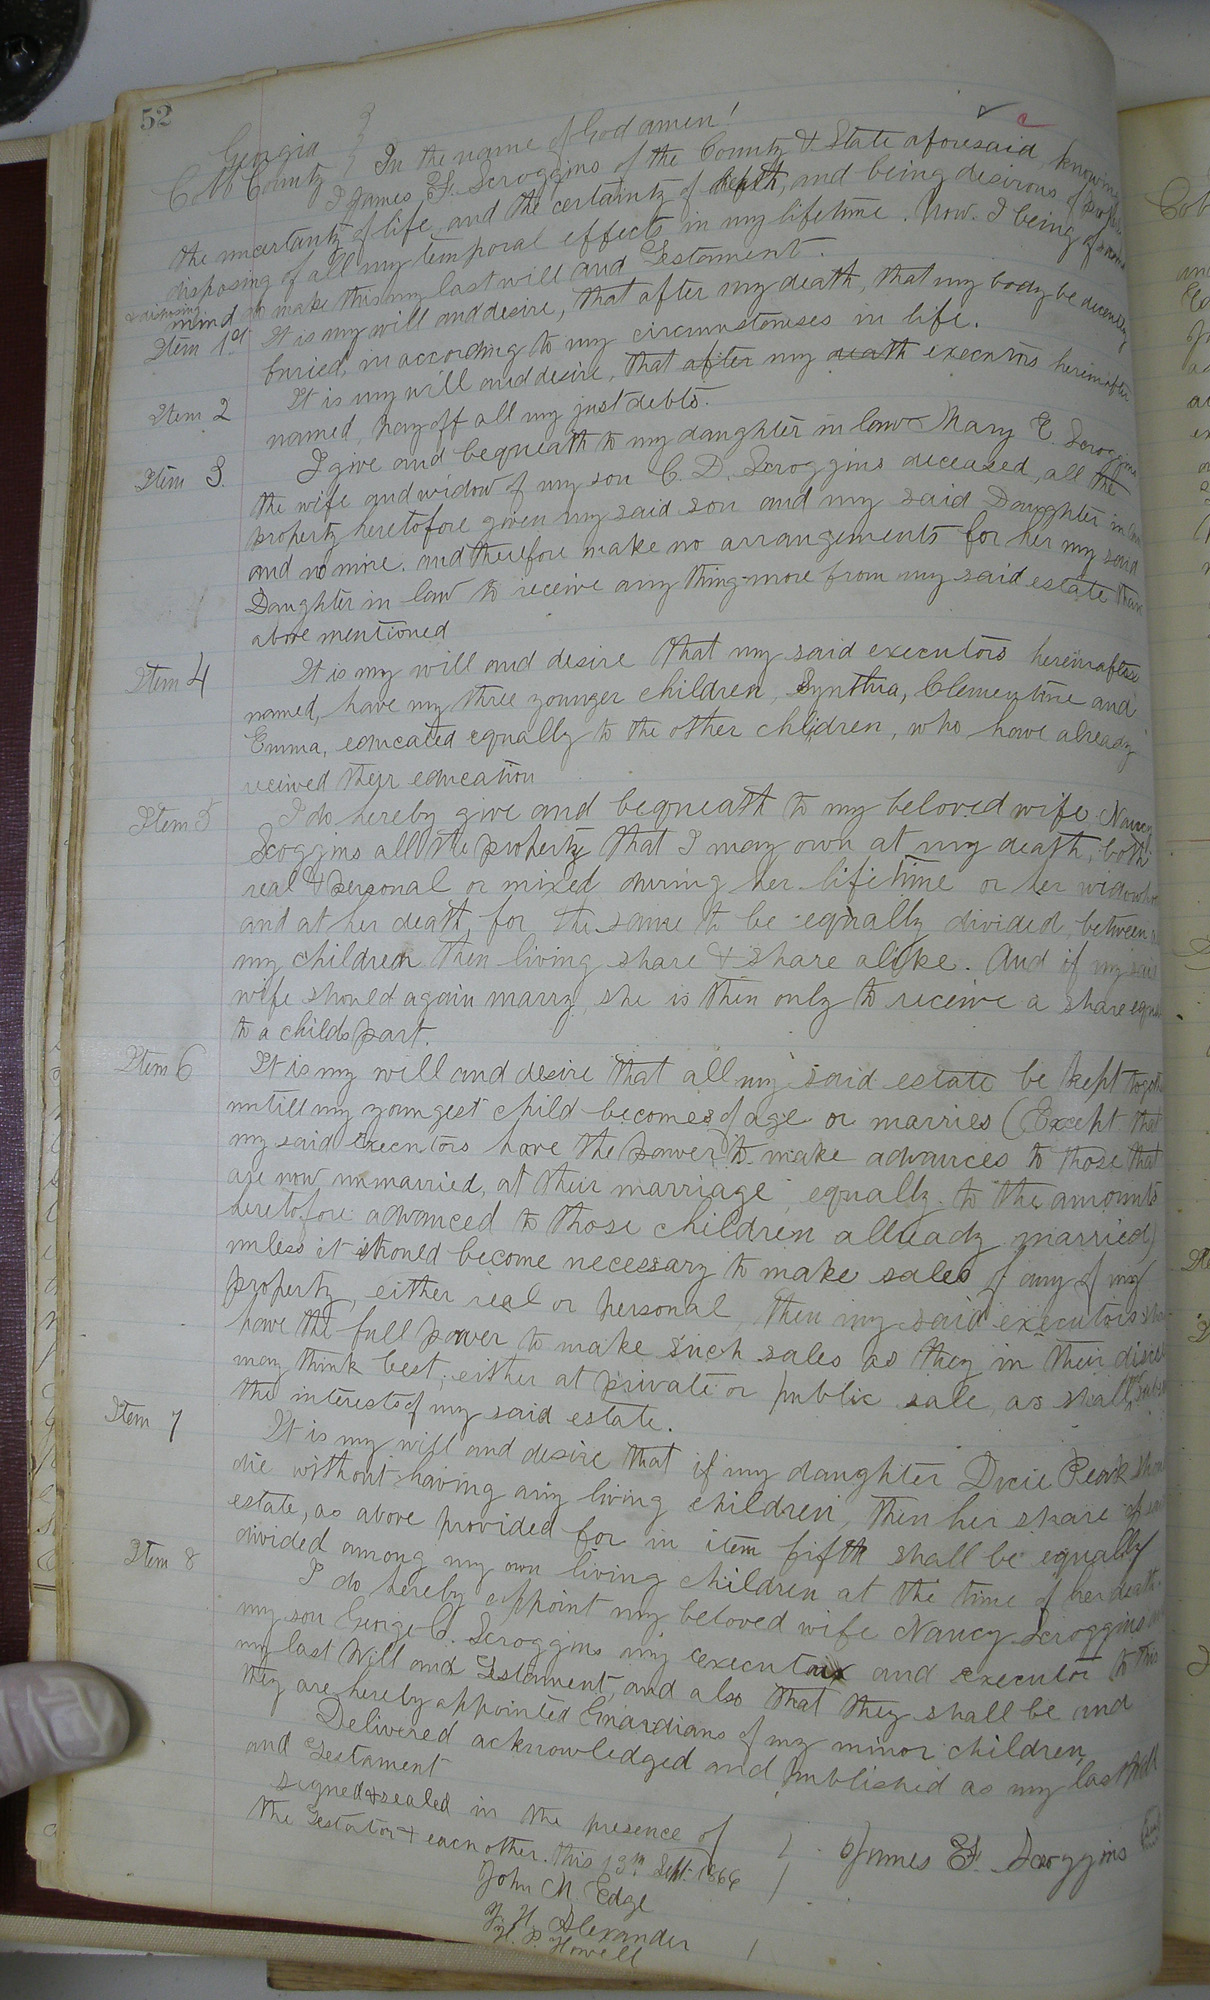 52
Georgia
Cobb County } In the name of God amen!
I James F. Scroggins of the County & State aforesaid, knowing
the uncertanty of life, and the certainty of death, and being desirous of
disposing of all my temporal effects in my lifetime. Now I being of sound
& disposing
mind do make this my last will and Testament.
Item 1st It is my will and desire, that after my death, that my body be decently
buried, in according to my circumstanses in life.
Item 2 It is my will and desire, that after my death executors hereinafter
named, pay off all my just debts.
Item 3. I give and bequeath to my daughter in law Mary E. Scroggins
the wife and widow of my son C. D. Scroggins deceased, all the
property heretofore given my said son and my said Daughter in law
and no more. and therefore make no arrangements for her my said
Daughter in law to receive any thing more from my said estate than
above mentioned
Item 4 It is my will and desire that my said executors hereinafter
named, have my three younger children, Synthia, Clementine and
Emma, educated equally to the other children, who have already
recived their education
Item 5 I do hereby give and bequeath to my beloved wife Nancy
Scoggins all the property that I may own at my death, both
real & personal or mixed during her lifetime or her widowhoo
and at her death, for the same to be equally divided, between a
my children then living share & share alike. And if my said
wife should again marry, she is then only to receive a share equa
to a childs part.
Item 6 It is my will and desire that all my said estate be kept togeth
untill my youngest child becomes of age or marries (Except that
my said executors have the power to make advances to those that
are now unmarried, at their marriage, equally to the amounts
heretofore advanced to those children allready married)
unless it should become necessary to make sales of any of my
property, either real or personal, then my said executors shal
have the full power to make such sales as they in their discre
may think best, either at private or public sale, as shall
the interests of my said estate.
Item 7 It is my will and desire that if my daughter Dicie Peak shoul
die without having any living children, then her share of said
estate, as above provided for in item fifth shall be equally
divided among my own living children at the time of her death.
Item 8 I do hereby appoint my beloved wife Nancy Scroggins
my son George C. Scroggins my executrix and executor to this
my last Will and Testament, and also that they shall be and
they are hereby appointed Guardians of my minor children
Delivered acknowledged and published as my last Will
and Testament
signed & sealed in the presence of
the Testator & each other. this 13th Sept. 1866 } James F. Scroggins
John M. Edge
H. Alexander
H. P. Howell